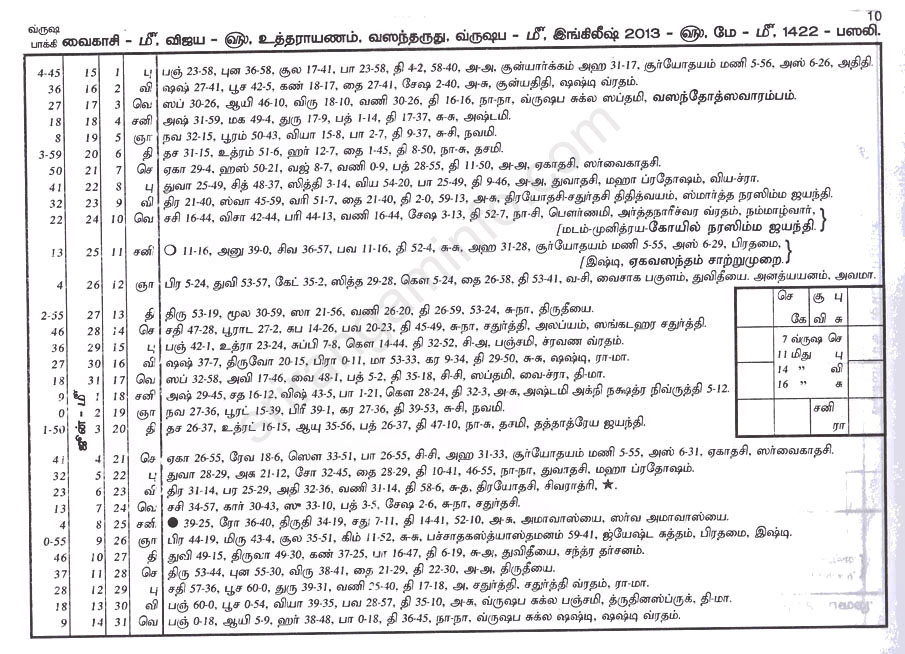 10
வ்ருஷ
பாக்கி வைகாசி - மீ, விஜய - ௵, உத்தராயணம், வஸந்தருது, வ்ருஷப - மீ, இங்கிலீஷ் 2013 - ௵, மே - மீ, 1422 - பஸலி.
4-45 15 1 பு பஞ் 23-58, புன 36-58, சூல 17-41, பா 23-58, தி 4-2, 58-40, அ-அ, சூன்யார்க்கம் அஹ 31-17, சூர்யோதயம் மணி 5-56, அஸ் 6-26, அதிதி.
36 16 2 வி ஷஷ் 27-41, பூச 42-5, கண் 18-17, தை 27-41, சேஷ 2-40, அ-சு, சூன்யதிதி, ஷஷ்டி வ்ரதம்.
27 17 3 வெ ஸப் 30-26, ஆயி 46-10, விரு 18-10, வணி 30-26, தி 16-16, நா-நா, வ்ருஷப சுக்ல ஸப்தமி, வஸந்தோத்ஸவாரம்பம்.
18 18 4 சனி அஷ் 31-59, மக 49-4, துரு 17-9, பத் 1-14, தி 17-37, சு-சு, அஷ்டமி.
8 19 5 ஞா நவ 32-15, பூரம் 50-43, வியா 15-8, பா 2-7, தி 9-37, சு-சி, நவமி.
3-59 20 6 தி தச 31-15, உத்ரம் 51-6, ஹர் 12-7, தை 1-45, தி 8-50, நா-சு, தசமி.
50 21 7 செ ஏகா 29-4, ஹஸ் 50-21, வஜ் 8-7, வணி 0-9, பத் 28-55, தி 11-50, அ-அ, ஏகாதசி, ஸர்வைகாதசி.
41 22 8 பு துவா 25-49, சித் 48-37, ஸித்தி 3-14, விய 54-20, பா 25-49, தி 9-46, அ-அ, துவாதசி, மஹா ப்ரதோஷம், விய-ச்ரா.
32 23 9 வி திர 21-40, ஸ்வா 45-59, வரி 51-7, தை 21-40, தி 2-0, 59-13, அ-சு, திரயோதசி-சதுர்தசி திதித்வயம், ஸ்மார்த்த நரஸிம்ம ஜயந்தி.
22 24 10 வெ சசி 16-44, விசா 42-44, பரி 44-13, வணி 16-44, சேஷ 3-13, தி 52-7, நா-சி, பௌர்ணமி, அர்த்தநாரீச்வர வ்ரதம், நம்மாழ்வார்,
[மடம்-முனித்ரய-கோயில் நரஸிம்ம ஜயந்தி.
13 25 11 சனி ○ 11-16, அனு 39-0, சிவ 36-57, பவ 11-16, தி 52-4, சு-சு, அஹ 31-28, சூர்யோதயம் மணி 5-55, அஸ் 6-29, பிரதமை,
[இஷ்டி, ஏகவஸந்தம் சாற்றுமுறை.
4 26 12 ஞா பிர 5-24, துவி 53-57, கேட் 35-2, ஸித்த 29-28, கௌ 5-24, தை 26-58, தி 53-41, வ-சி, வைசாக பகுளம், துவிதீயை. அனத்யயனம், அவமா.
2-55 27 13 தி திரு 53-19, மூல 30-59, ஸா 21-56, வணி 26-20, தி 26-59, 53-24, சு-நா, திருதீயை.
46 28 14 செ சதி 47-28, பூராட 27-2, சுப 14-26, பவ 20-23, தி 45-49, சு-நா, சதுர்த்தி, அலப்யம், ஸங்கடஹர சதுர்த்தி.
36 29 15 பு பஞ் 42-1, உத்ரா 23-24, சுப்பி 7-8, கௌ 14-44, தி 32-52, சி-அ, பஞ்சமி, ச்ரவண வ்ரதம்.
27 30 16 வி ஷஷ் 37-7, திருவோ 20-15, பிரா 0-11, மா 53-33, கர 9-34, தி 29-50, சு-சு, ஷஷ்டி, ரா-மா.
18 31 17 வெ ஸப் 32-58, அவி 17-46, வை 48-1, பத் 5-2, தி 35-18, சி-சி, ஸப்தமி, வை-ச்ரா, தி-மா.
9 1 18 சனி அஷ் 29-45, சத 16-12, விஷ் 43-5, பா 1-21, கௌ 28-24, தி 32-3, அ-சு, அஷ்டமி அக்நி நக்ஷத்ர நிவ்ருத்தி 5-12.
0 2 19 ஞா நவ 27-36, பூரட் 15-39, பிரீ 39-1, கர 27-36, தி 39-53, சு-சி, நவமி.
1-50 3 20 தி தச 26-37, உத்ரட் 16-15, ஆயு 35-56, பத் 26-37, தி 47-10, நா-சு, தசமி, தத்தாத்ரேய ஜயந்தி.
ஜூன் - மீ
41 4 21 செ ஏகா 26-55, ரேவ 18-6, ஸௌ 33-51, பா 26-55, சி-சி, அஹ 31-33, சூர்யோதயம் மணி 5-55, அஸ் 6-31, ஏகாதசி, ஸர்வைகாதசி.
32 5 22 பு துவா 28-29, அசு 21-12, சோ 32-45, தை 28-29, தி 10-41, 46-55, நா-நா, துவாதசி, மஹா ப்ரதோஷம்.
23 6 23 வி திர 31-14, பர 25-29, அதி 32-36, வணி 31-14, தி 58-6, சு-த, திரயோதசி, சிவராத்ரி, ★.
13 7 24 வெ சசி 34-57, கார் 30-43, ஸு 33-10, பத் 3-5, சேஷ 2-6, சு-நா, சதுர்தசி.
4 8 25 சனி ● 39-25, ரோ 36-40, திருதி 34-19, சது 7-11, தி 14-41, 52-10, அ-சு, அமாவாஸ்யை, ஸர்வ அமாவாஸ்யை.
0-55 9 26 ஞா பிர 44-19, மிரு 43-4, சூல 35-51, கிம் 11-52, சு-சு, பச்சாதகஸ்த்யாஸ்தமனம் 59-41, ஜ்யேஷ்ட சுத்தம், பிரதமை, இஷ்டி.
46 10 27 தி துவி 49-15, திருவா 49-30, கண் 37-25, பா 16-47, தி 6-19, சு-அ, துவிதீயை, சந்த்ர தர்சனம்.
37 11 28 செ திரு 53-44, புன 55-30, விரு 38-41, தை 21-29, தி 22-30, அ-அ, திருதீயை.
28 12 29 பு சதி 57-36, பூச 60-0, துரு 39-31, வணி 25-40, தி 17-18, அ, சதுர்த்தி, சதுர்த்தி வ்ரதம், ரா-மா.
18 13 30 வி பஞ் 60-0, பூச 0-54, வியா 39-35, பவ 28-57, தி 35-10, அ-சு, வ்ருஷப சுக்ல பஞ்சமி, த்ருதினஸ்ப்ருக், தி-மா.
9 14 31 வெ பஞ் 0-18, ஆயி 5-9, ஹர் 38-48, பா 0-18, தி 36-45, நா-நா, வ்ருஷப சுக்ல ஷஷ்டி, ஷஷ்டி வ்ரதம்.
செ சூ பு
கே வி சு
7 வ்ருஷ செ
11 மிது பு
14 " வி
16 " சு
சனி
ரா